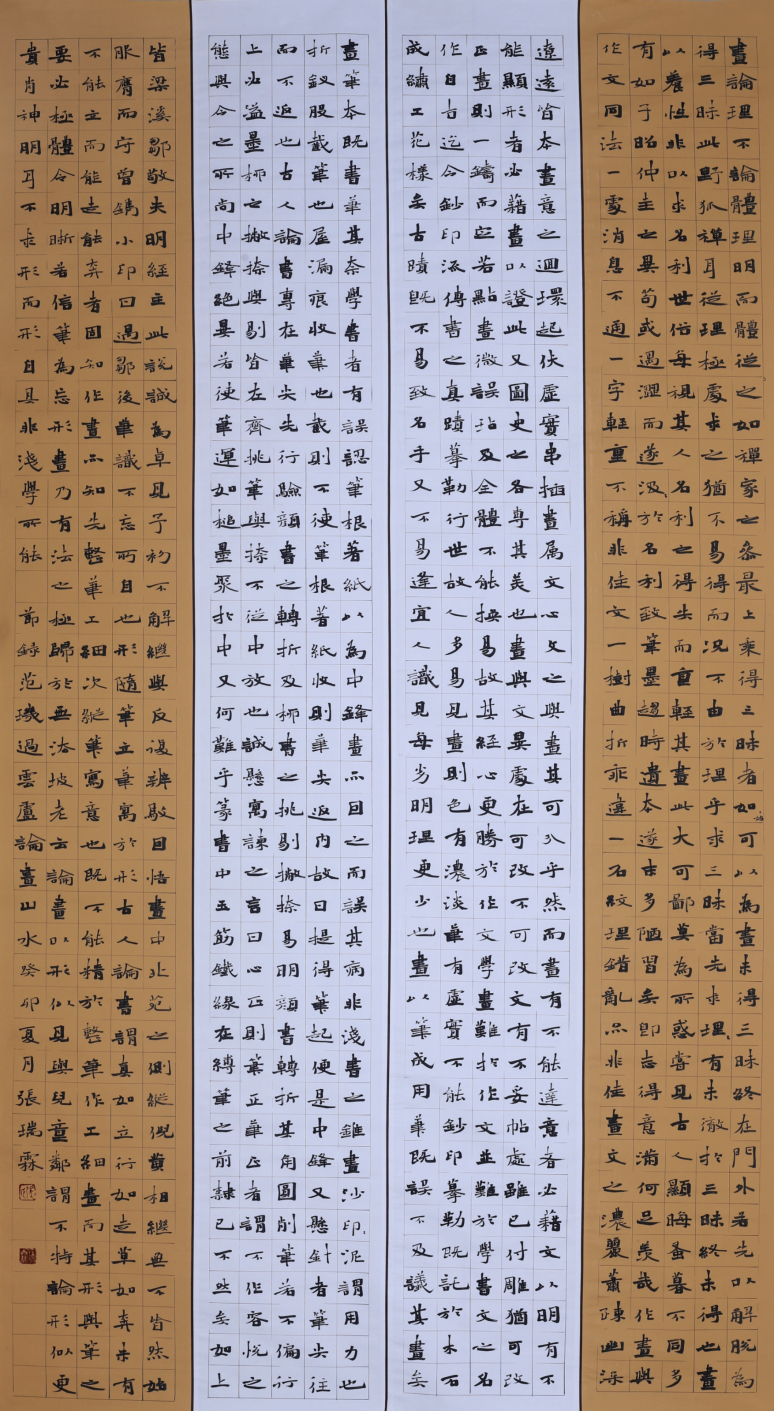 畫論理不論體理明而體從之如禪家之參最上乘得三昧者如可以為畫未得三昧終在門外若先以解脫為
得三昧此野狐禪耳從理極處求之猶不易得而況不由於理乎求三昧當先求理、有未徹於三昧終未得也畫
以養性非以求名利世俗每視其人名利之得失而重輕其畫此大可鄙莫為所惑嘗見古人顯晦蚤暮不同多
有如子昭仲圭之異苟或遇澀而遂汲、於名利致筆墨趨時遺本逐末多陋習矣即志得意滿何足羨哉作畫與
作文同法一處消息不通一字輕重不稱非佳文一樹曲折乖違一石紋理錯亂亦非佳畫文之濃麗蕭疎幽深
遼遠皆本畫意之迴環起伏虛實串插畫属文心文之與畫其可分乎然而畫有不能達意者必藉文以明有不
能顯形者必藉畫以證此又圖史之各專其美也畫與文異處在可改不可改文有不妥帖處雖已付雕猶可改
正畫則一鑄而定若點畫微誤玷及全體不能換易故其經心更勝於作文學畫難於作文並難於學書文之名
作自古迄今鈔印流傳書之真蹟摹勒行世故人多易見畫則色有濃淡筆有虛實不能鈔印摹勒既託於木石
成繡工花樣矣古蹟既不易致名手又不易逢宜人識見每劣明理更少也畫以筆成用筆既誤不及議其畫矣
畫筆本既書筆其奈學書者有誤認筆根著紙以為中鋒畫亦因之而誤其病非淺書之錐畫沙印、泥謂用力也
折釵股截筆也屋漏痕收筆也截則不使筆根著紙收則筆尖返內故曰提得筆起便是中鋒又懸針者筆尖往
而不返也古人論書專在筆尖先行驗顏書之轉折及柳書之挑剔撇捺易明顏書轉折其角圓削筆若不偏行
上必溢墨柳之撇捺與剔皆左齊挑筆與捺不從中放也誠懸寓諫之言曰心正則筆正筆正者謂不作容悅之
態與今之所尚中鋒絕異若使筆運如槌墨聚於中又何難乎篆書中玉筋鐵線在縛筆之前隸已不然矣如上
皆梁溪鄒敬夫明經主此說誠為卓見予初不解繼與反復辨駁自悟畫中北苑之側縱倪黃相繼無不皆然始
服膺而守曾鐫小印曰遇鄒後筆識不忘所自也形隨筆立筆寓於形古人論書謂真如立行如走草如奔未有
不能立而能走能奔者固知作畫亦知先整筆工細次縱筆寫意也既不能精於整筆作工細畫而其形與筆之
要必極體合明晰若信筆為忘形畫乃有法之極歸於無法坡老云論畫以形似見與兒童鄰謂不特論形似更
貴肖神明耳不求形而形自具非淺學所能 節錄范璣過雲廬論畫山水癸卯夏月張瑞霖